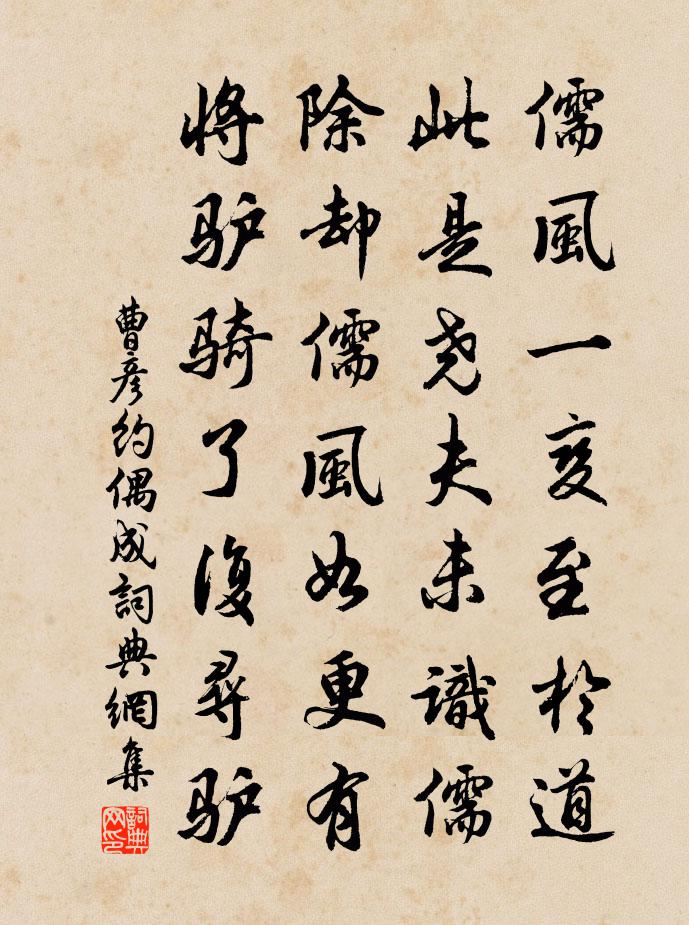 儒風一变至於道
此是尧夫未識儒
除却儒風如更有
将驴骑了復尋驴
曹彦约偶成詞典網集
詞典网印